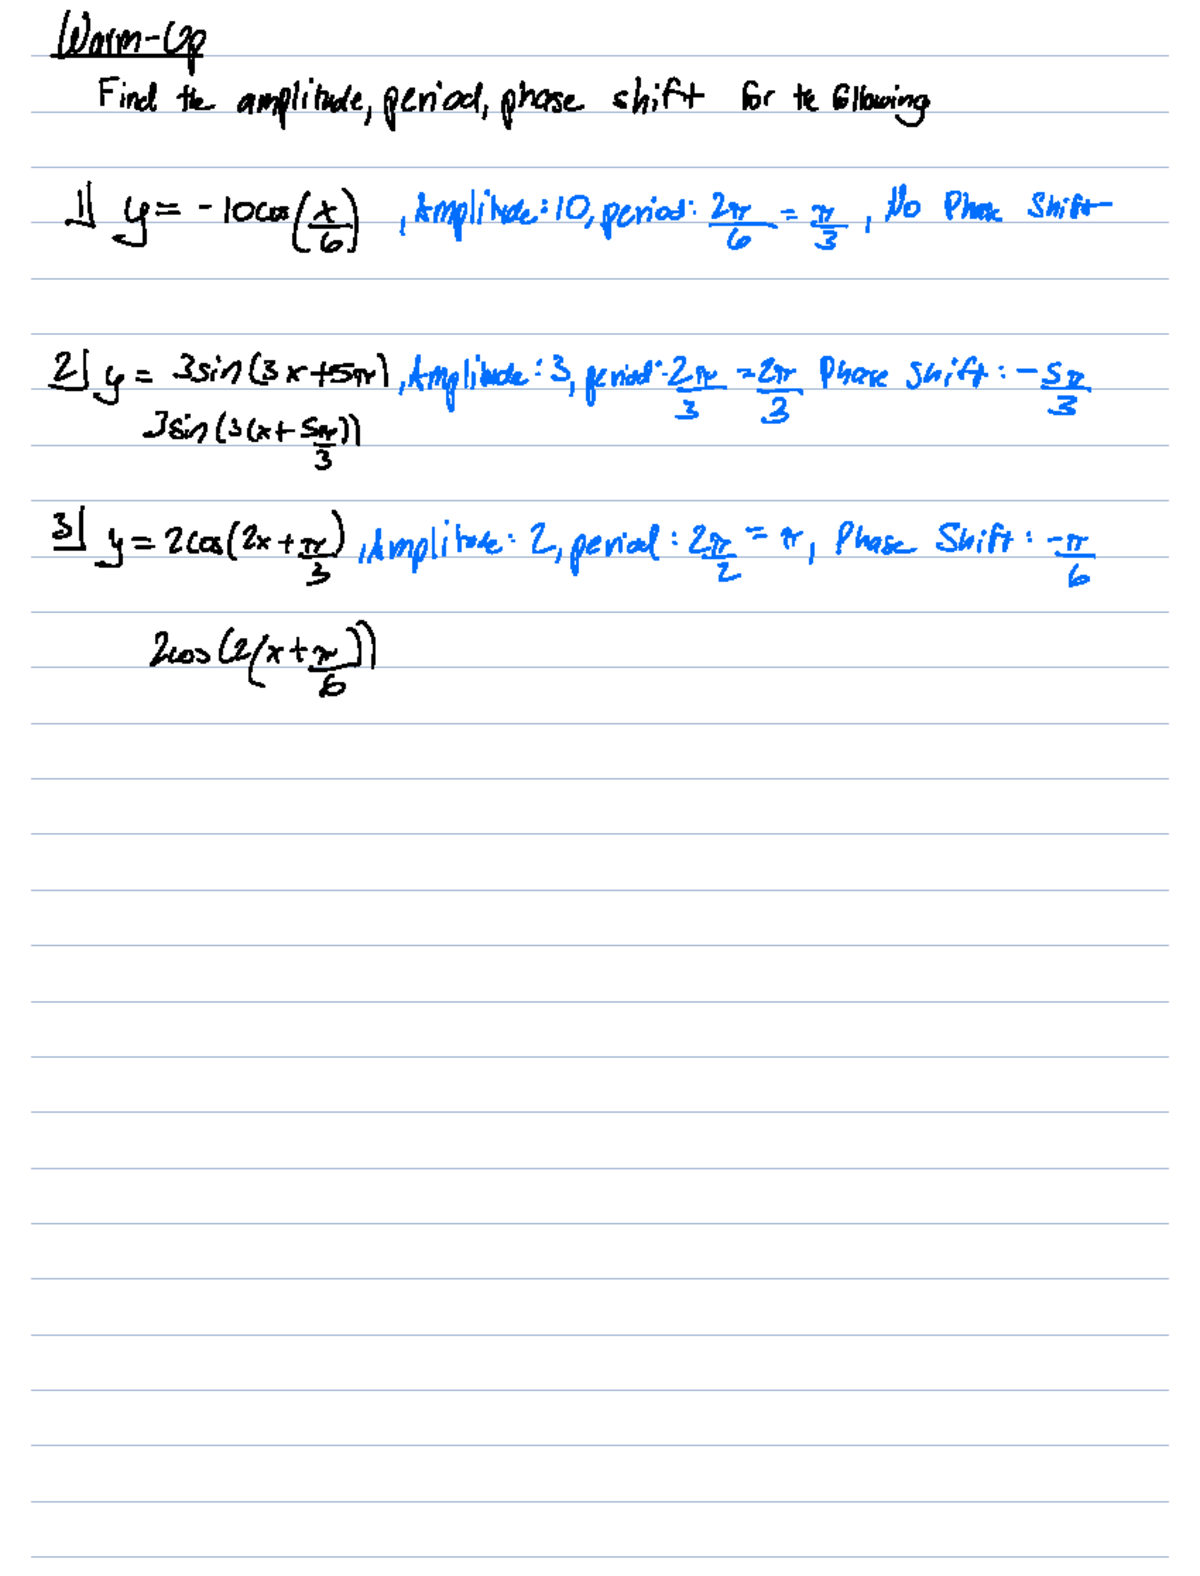 Warm-Up
Find the amplitude, period, phase shift for the following
1) y = -10cos(x/6), Amplitude: 10, period: 2π/6 = π/3, No Phase Shift
2) y = 3sin(3x+5π), Amplitude: 3, period: 2π/3 = 2π/3 Phase Shift: -5π/3
3sin(3(x+5π/3))
3) y = 2cos(2x+π/3), Amplitude: 2, period: 2π/2 = π, Phase Shift: -π/6
2cos(2(x+π/6))